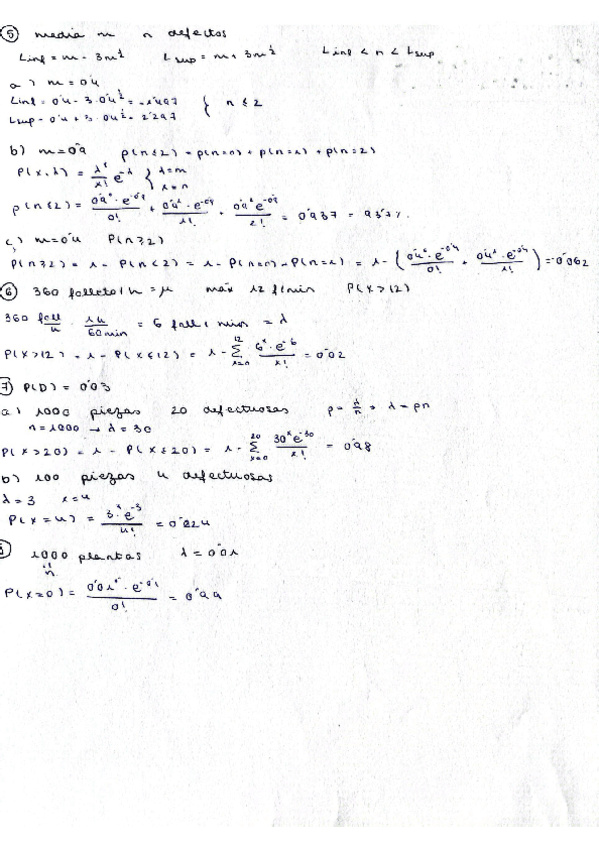 ⑤ media m n defectos
Linf = m - 3m^½ Lsup = m + 3m^½ Linf < n < Lsup
a) m = 0'4
Linf = 0'4 - 3·0'4^½ = -1'497 } n ≤ 2
Lsup = 0'4 + 3·0'4^½ = 2'297
b) m = 0'9 p(n≤2) = p(n=0) + p(n=1) + p(n=2)
P(x,λ) = λ^x/x! e^-λ { λ=m x=n
p(n≤2) = 0'9^0·e^-0'9/0! + 0'9^1·e^-0'9/1! + 0'9^2 e^-0'9/2! = 0'937 = 93'7%
c) m = 0'4 P(n≥2)
P(n≥2) = 1 - P(n<2) = 1 - P(n=0) - P(n=1) = 1 - (0'4^0·e^-0'4/0! + 0'4^1·e^-0'4/1!) = 0'062
⑥ 360 folletos/h = μ máx 12 f/min P(x>12)
360 foll/h · 1h/60min = 6 foll/min = λ
P(x>12) = 1 - P(x≤12) = 1 - Σ 6^x·e^-6/x! = 0'02
⑦ P(D) = 0'03
a) 1000 piezas 20 defectuosas p = λ/n → λ = pn
n = 1000 → λ = 30
P(x>20) = 1 - P(x≤20) = 1 - Σ 30^x e^-30/x! = 0'98
b) 100 piezas 4 defectuosas
λ = 3 x = 4
P(x=4) = 3^x·e^-3/4! = 0'224
1000 plantas λ = 0'01
n
P(x=0) = 0'01^0·e^-0'1/0! = 0'99